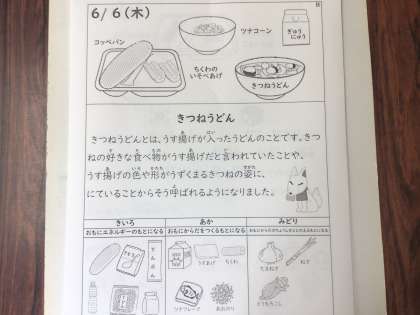 6/6(木)
B
コッペパン
ツナコーン
ぎゅう
にゅう
ちくわの
いそべあげ
きつねうどん
きつねうどん
きつねうどんとは、うす揚げが入ったうどんのことです。きつ
ねの好きな食べ物がうす揚げだと言われていたことや、
うす揚げの色や形がうずくまるきつねの姿に、
にていることからそう呼ばれるようになりました。
きいろ
あか
みどり
おもにエネルギーのもとになる
おもにからだをつくるもとになる
おもにからだのちょうしをととのえるもとになる
でんぷん
うすあげ
ちくわ
たまねぎ
ねぎ
ツナフレーク
あおのり
とうもろこし